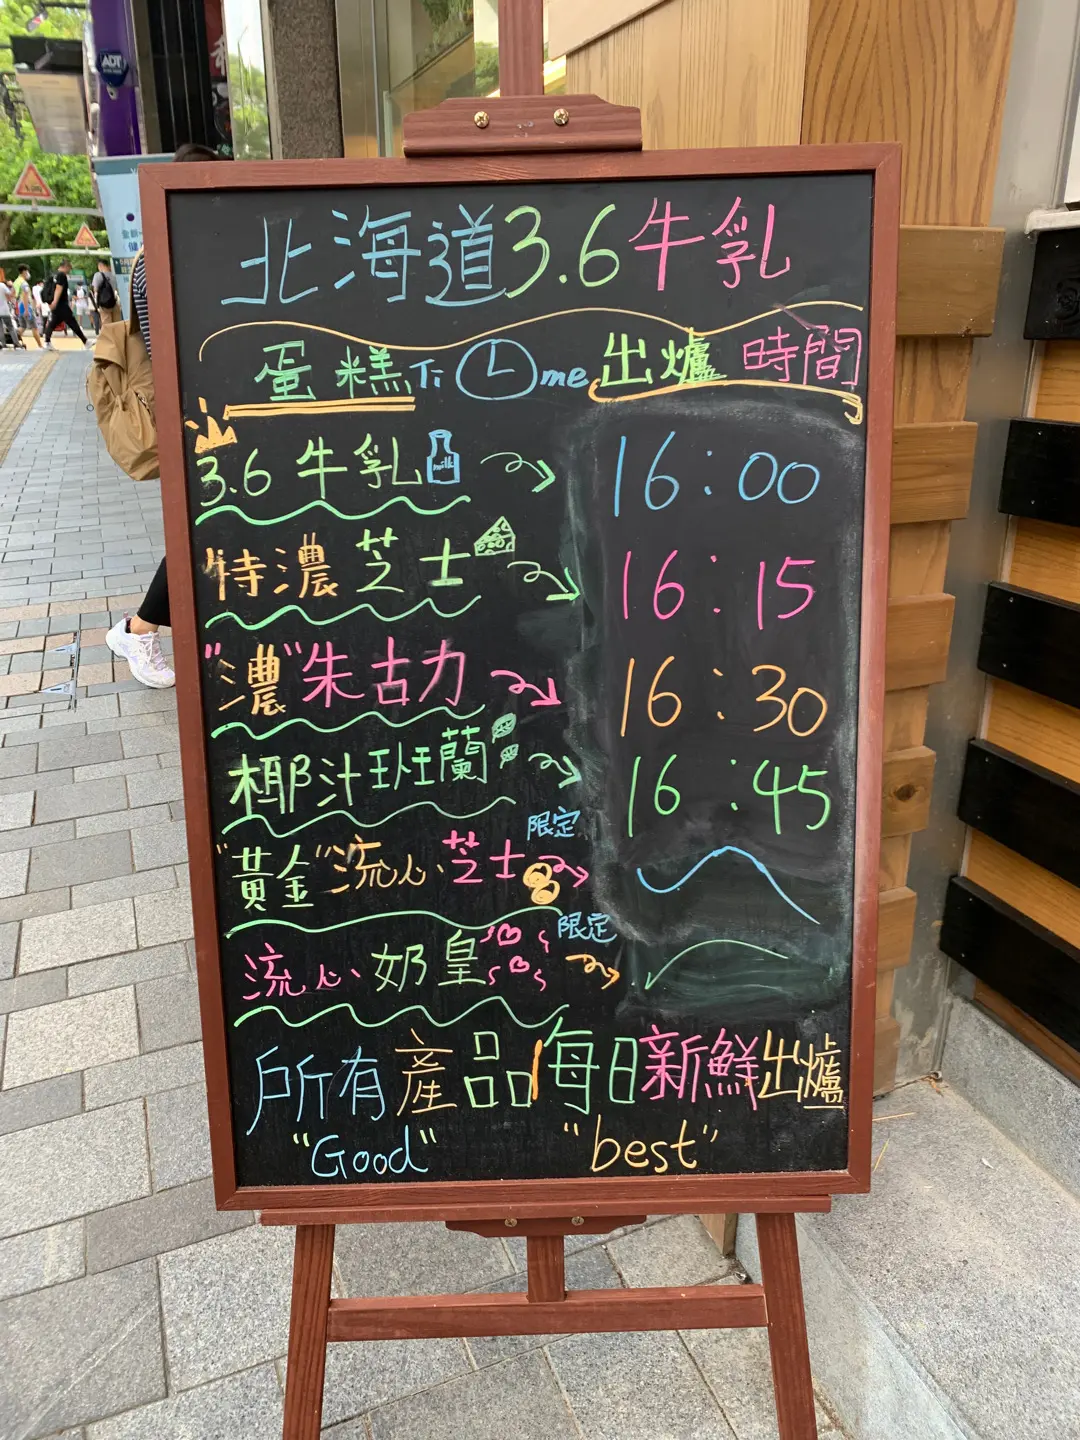 ADT
北海道3.6牛乳
蛋糕Time 出爐時間
3.6牛乳 milk 16:00
特濃芝士 16:15
"濃"朱古力 16:30
椰汁班蘭 16:45
"黃金"流心芝士 限定
流心奶皇 限定
所有產品每日新鮮出爐
"Good" "best"